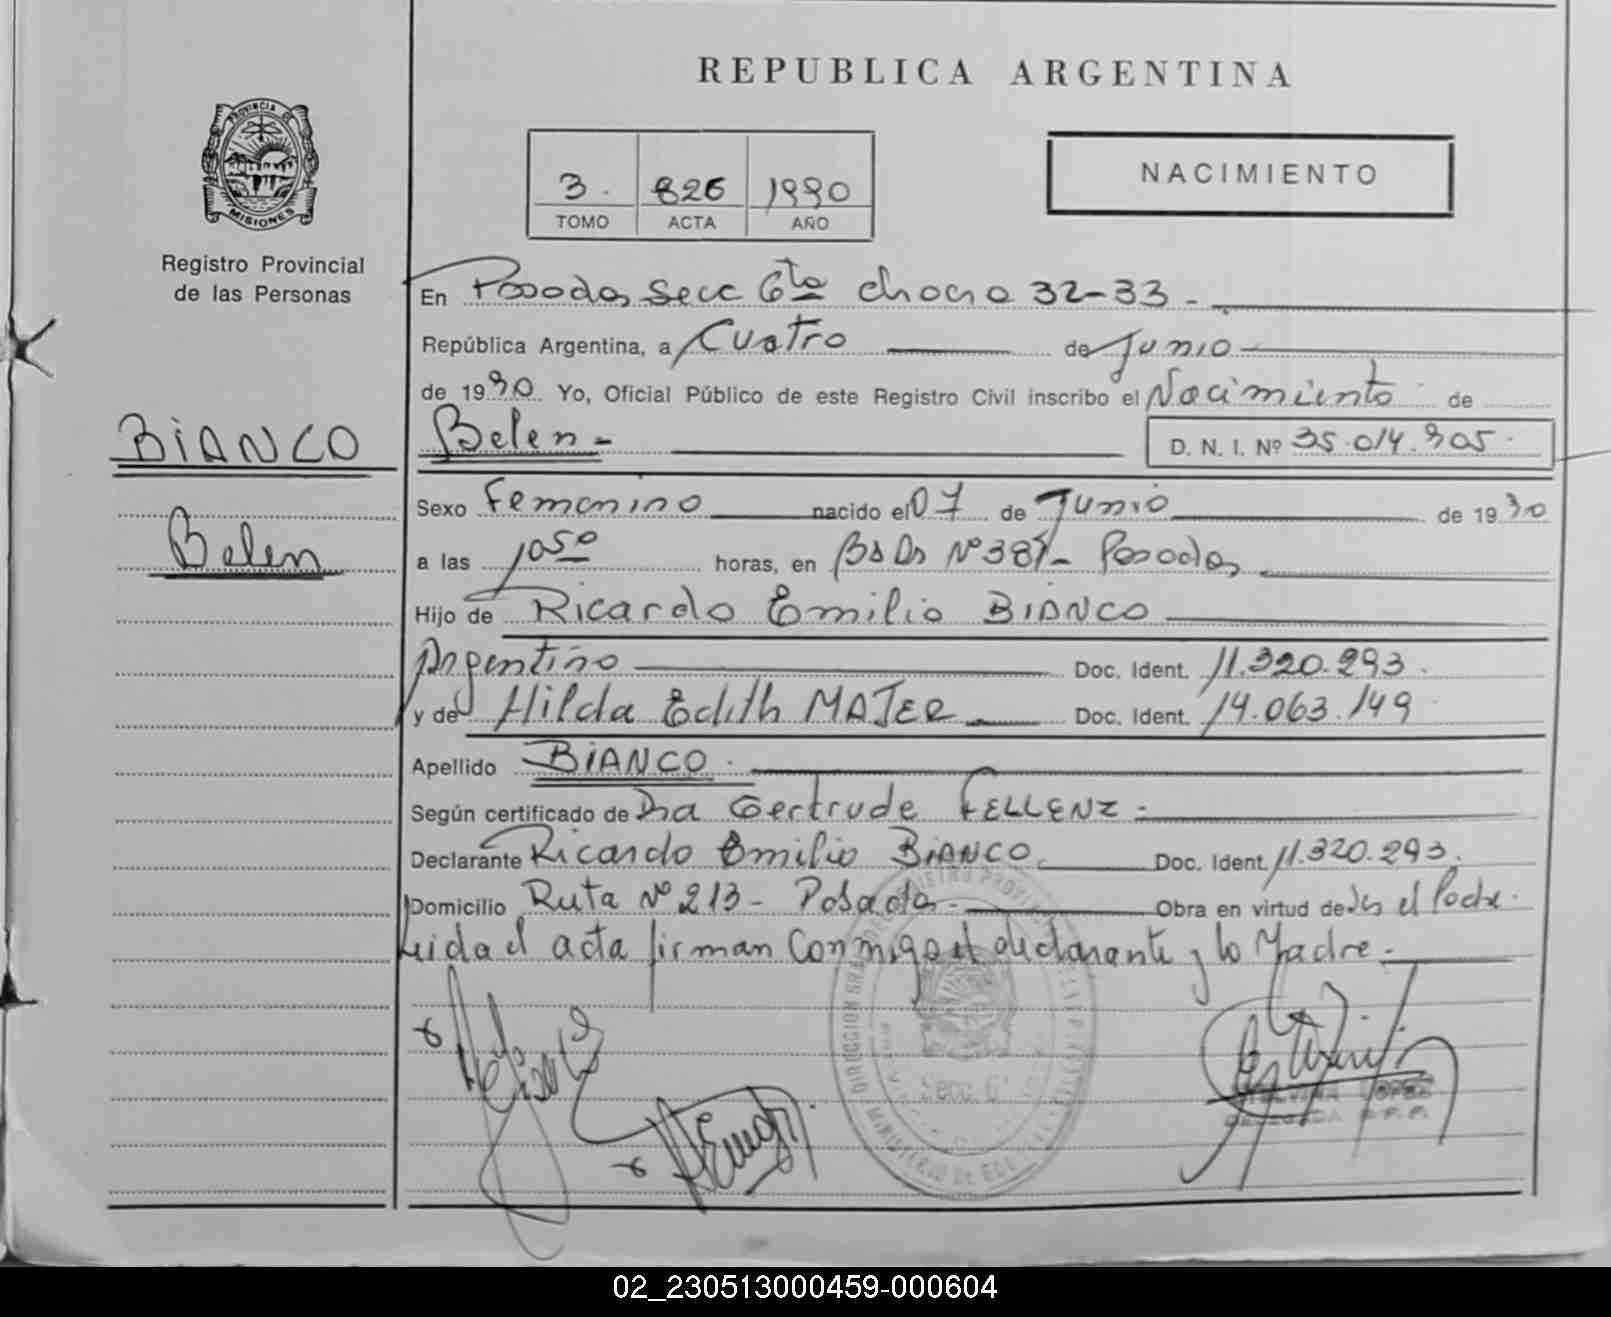 REPUBLICA ARGENTINA
PROVINCIA DE
MISIONES
Registro Provincial
de las Personas
3. 826 1990
TOMO ACTA AÑO
NACIMIENTO
En Posadas Secc 6ta chacra 32-33.
República Argentina, a Cuatro de Junio
de 1990 Yo, Oficial Público de este Registro Civil inscribo el Nacimiento de
BIANCO
Belen
Belen - D. N. I. Nº 35.014.905.
Sexo Femenino nacido el 07 de Junio de 1990
a las 1050 horas, en Bs As Nº 381 - Posadas
Hijo de Ricardo Emilio BIANCO
Argentino Doc. Ident. 11.320.293.
y de Hilda Edith MAJER Doc. Ident. 14.063.149
Apellido BIANCO.
Según certificado de Dra Gertrude FELLENZ.
Declarante Ricardo Emilio BIANCO Doc. Ident. 11.320.293.
Domicilio Ruta Nº 213 - Posadas. Obra en virtud de Ser el Padre.
Leida el acta firman Conmigo el declarante y la Madre.
Secc. 6
02_230513000459-000604